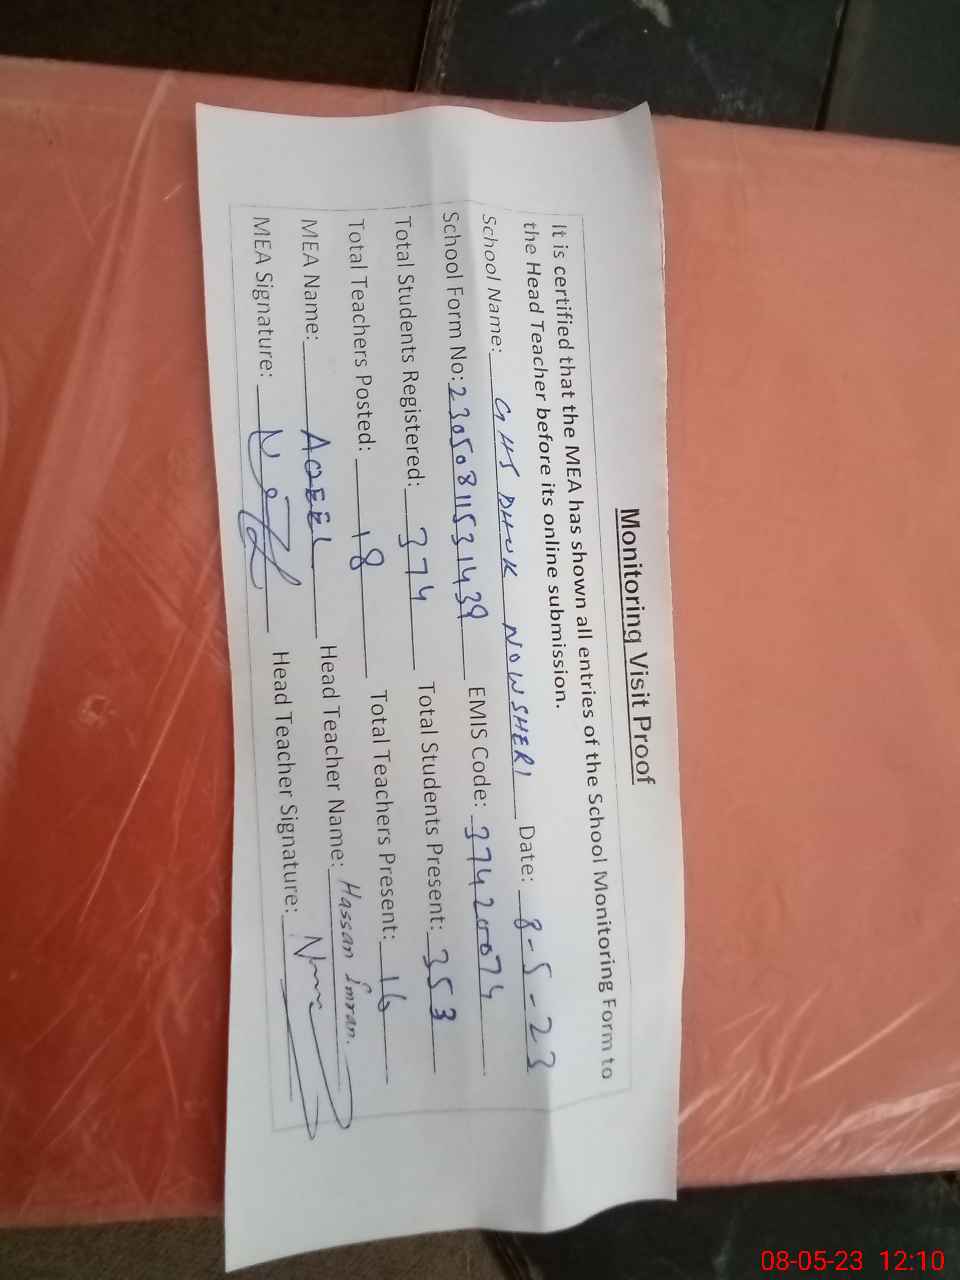 Monitoring Visit Proof
It is certified that the MEA has shown all entries of the School Monitoring Form to
the Head Teacher before its online submission.
School Name: GHS DHUK NOWSHERI Date: 8-5-23
School Form No: 23050811531439 EMIS Code: 37420074
Total Students Registered: 374 Total Students Present: 353
Total Teachers Posted: 18 Total Teachers Present: 16
MEA Name: AQEEL Head Teacher Name: Hassan Imran.
MEA Signature: Head Teacher Signature:
08-05-23 12:10